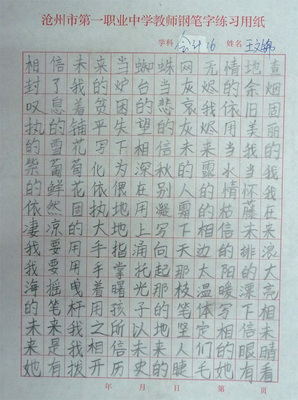 沧州市第一职业中学教师钢笔字练习用纸
学科 会计16 姓名 王文锦
相信未来当蜘蛛网无情地查
封了我的炉台当灰烬的余烟
叹息着贫困的悲哀我依旧固
执的铺平失望的灰烬用美丽
的雪花写下相信未来当我的
紫葡萄化为深秋的露水当我
的鲜花依偎在别人的情怀我
依然固执地用凝霜的枯藤在
凄凉的大地上写下相信未来
我要用手指涌向天边的排浪
我要用手掌托起那太阳的大
海摇曳着曙光那枝温暖漂亮
的笔杆用孩子的笔体写下相
未来我之所以地坚定相信未
来是我相信未来人们的眼睛
她有拨开历史的睫毛她有看
年 月 日 第 页